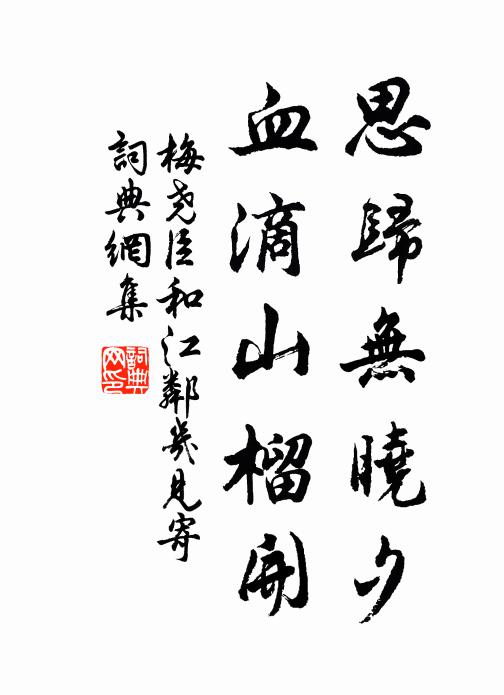 思歸無曉夕
血滴山榴開
梅堯臣和江鄰幾見寄
詞典網集
詞典网印